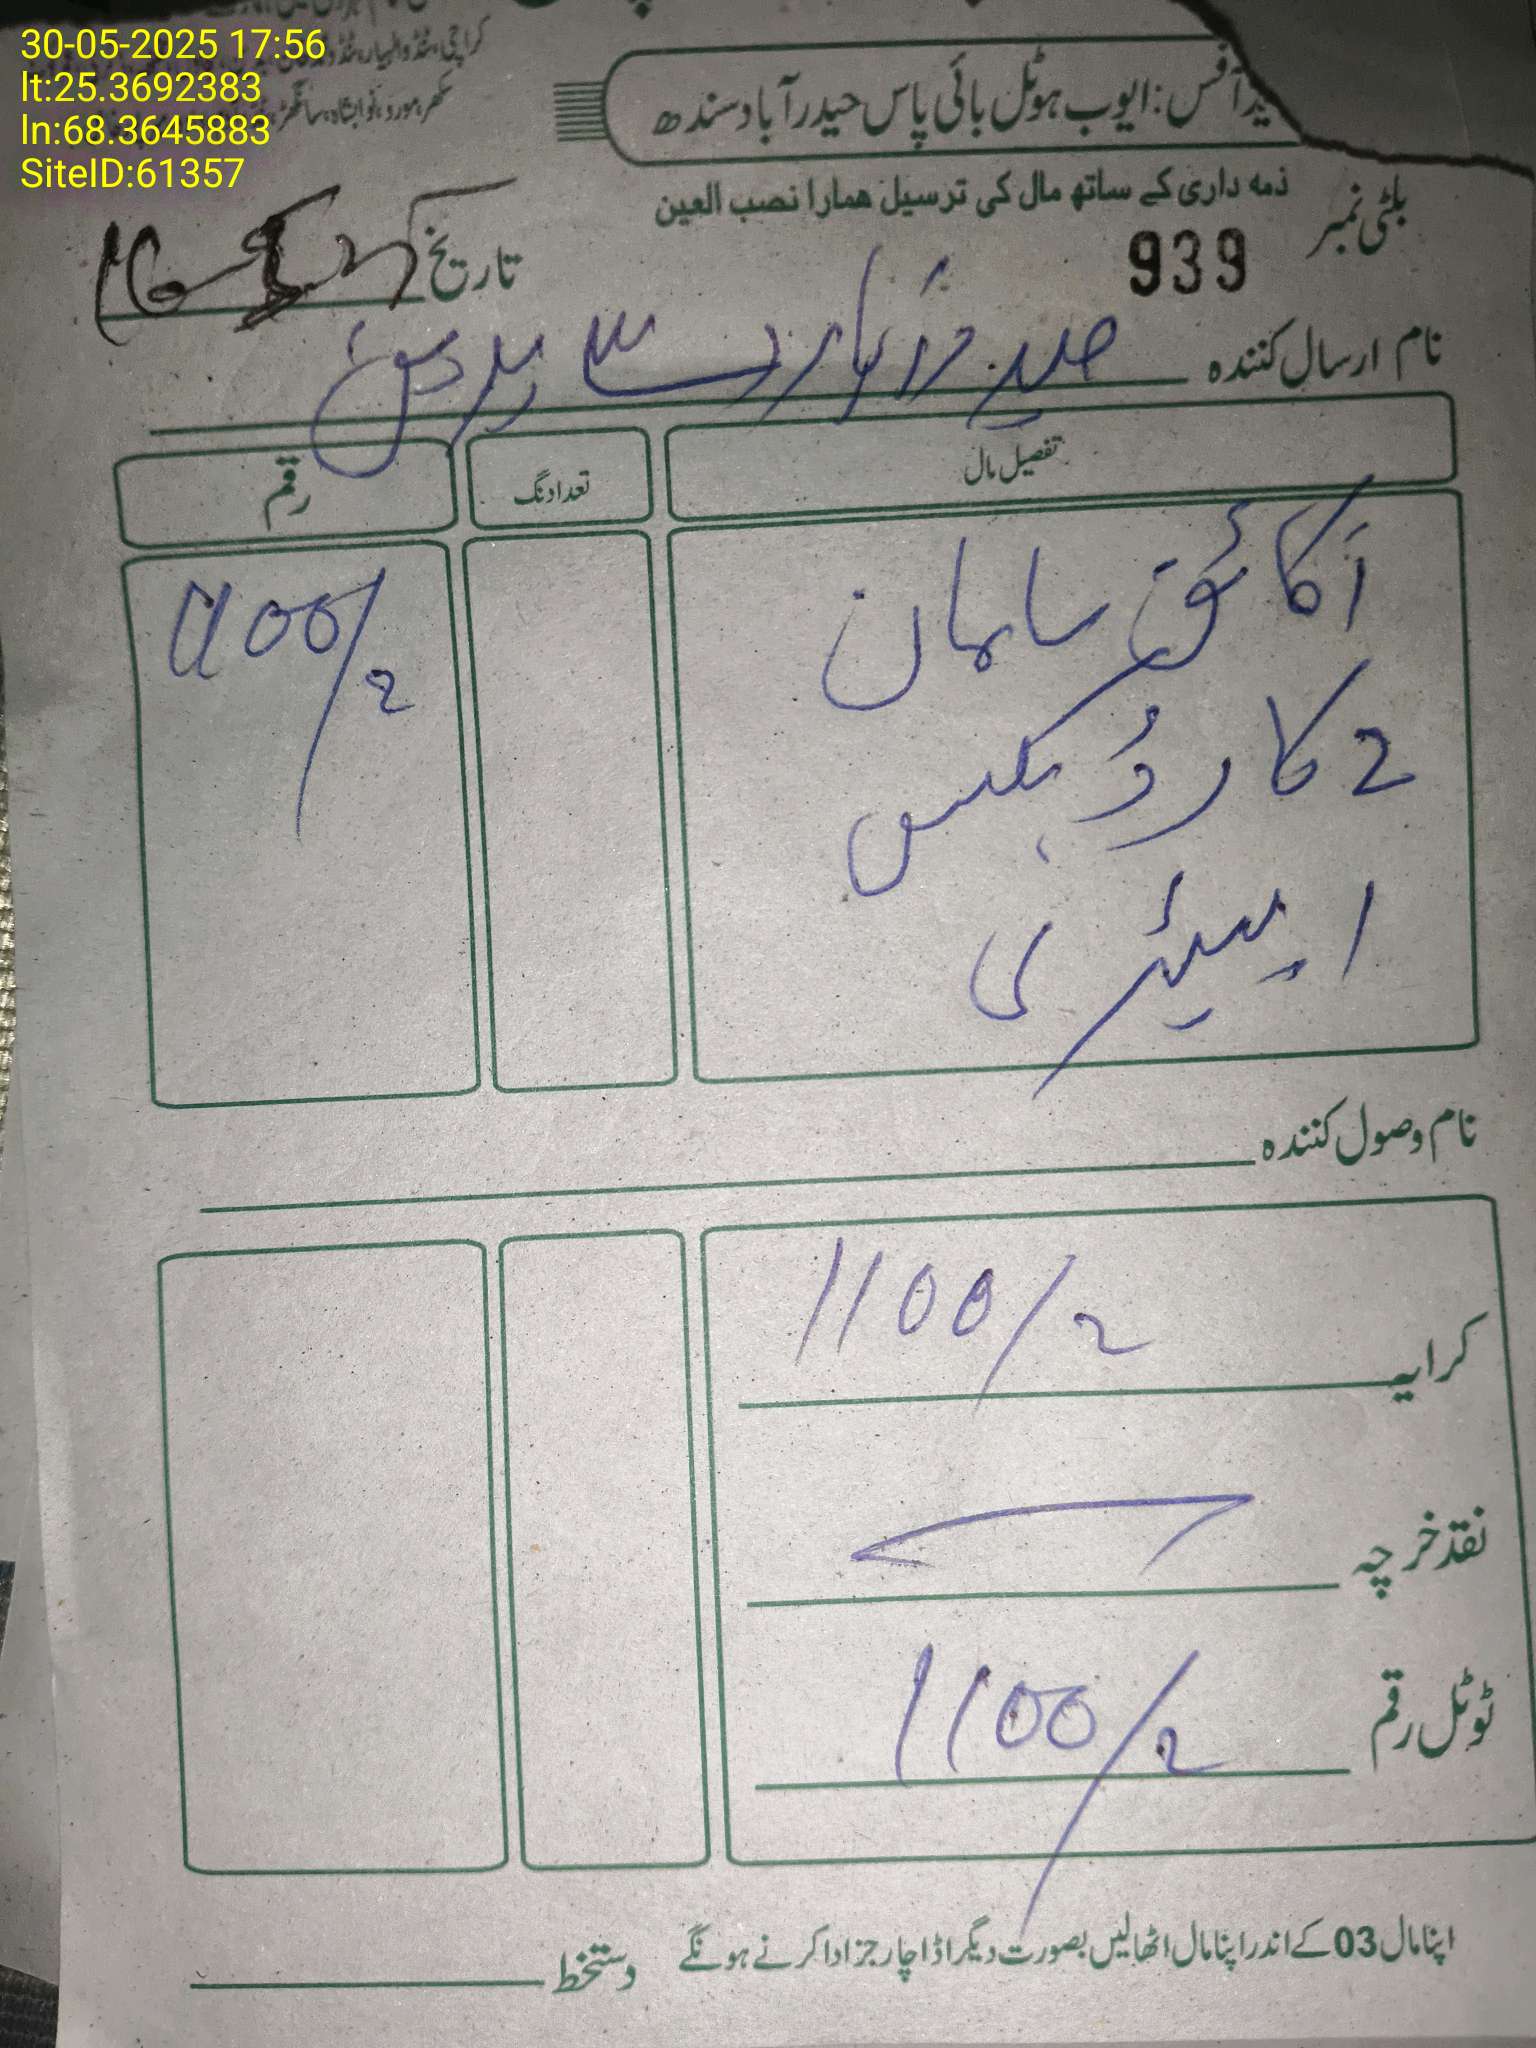 30-05-2025 17:56
lt:25.3692383
ln:68.3645883
SiteID:61357
سکھر، مورو، نوابشاہ، سانگھڑ،
آفس: ایوب ہوٹل بائی پاس حیدرآباد سندھ
ذمہ داری کے ساتھ مال کی ترسیل ہمارا نصب العین
بلٹی نمبر 939 تاریخ
نام ارسال کنندہ
تفصیل مال تعداد نگ رقم
سامان 1100/2
2 کارڈ بکس
1 بیٹری
نام وصول کنندہ
کرایہ 1100/2
نقد خرچہ
ٹوٹل رقم 1100/2
اپنا مال 03 کے اندر اپنا مال اٹھالیں بصورت دیگر اڈا چارجز ادا کرنے ہونگے دستخط